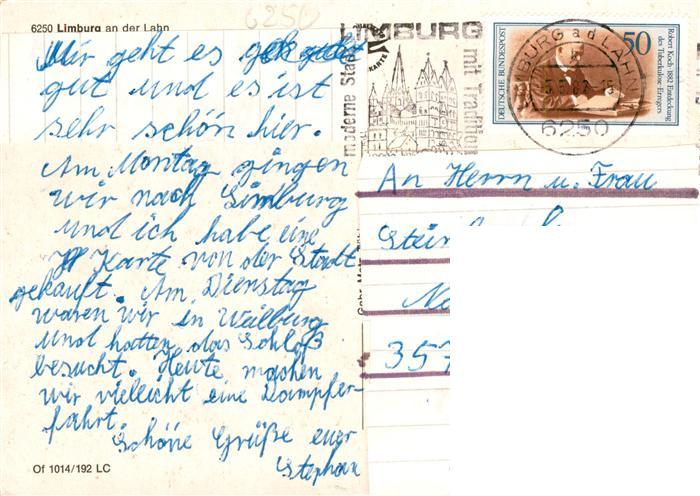 6250
6250 Limburg an der Lahn
Mir geht es
gut und es ist
sehr schön hier.
Am Montag gingen
wir nach Limburg
und ich habe eine
Karte von der Stadt
gekauft. Am Dienstag
waren wir in Weilburg
und hatten das Schloß
besucht. Heute machen
wir vielleicht eine Dampfer-
fahrt.
Schöne Grüße euer
Stephan
Of 1014/192 LC
LIMBURG
moderne Stadt
mit Tradition
LIMBURG a d LAHN
6250
50
DEUTSCHE BUNDESPOST
Robert Koch · 1882 Entdeckung
des Tuberkulose-Erregers
An Herrn u. Frau
357